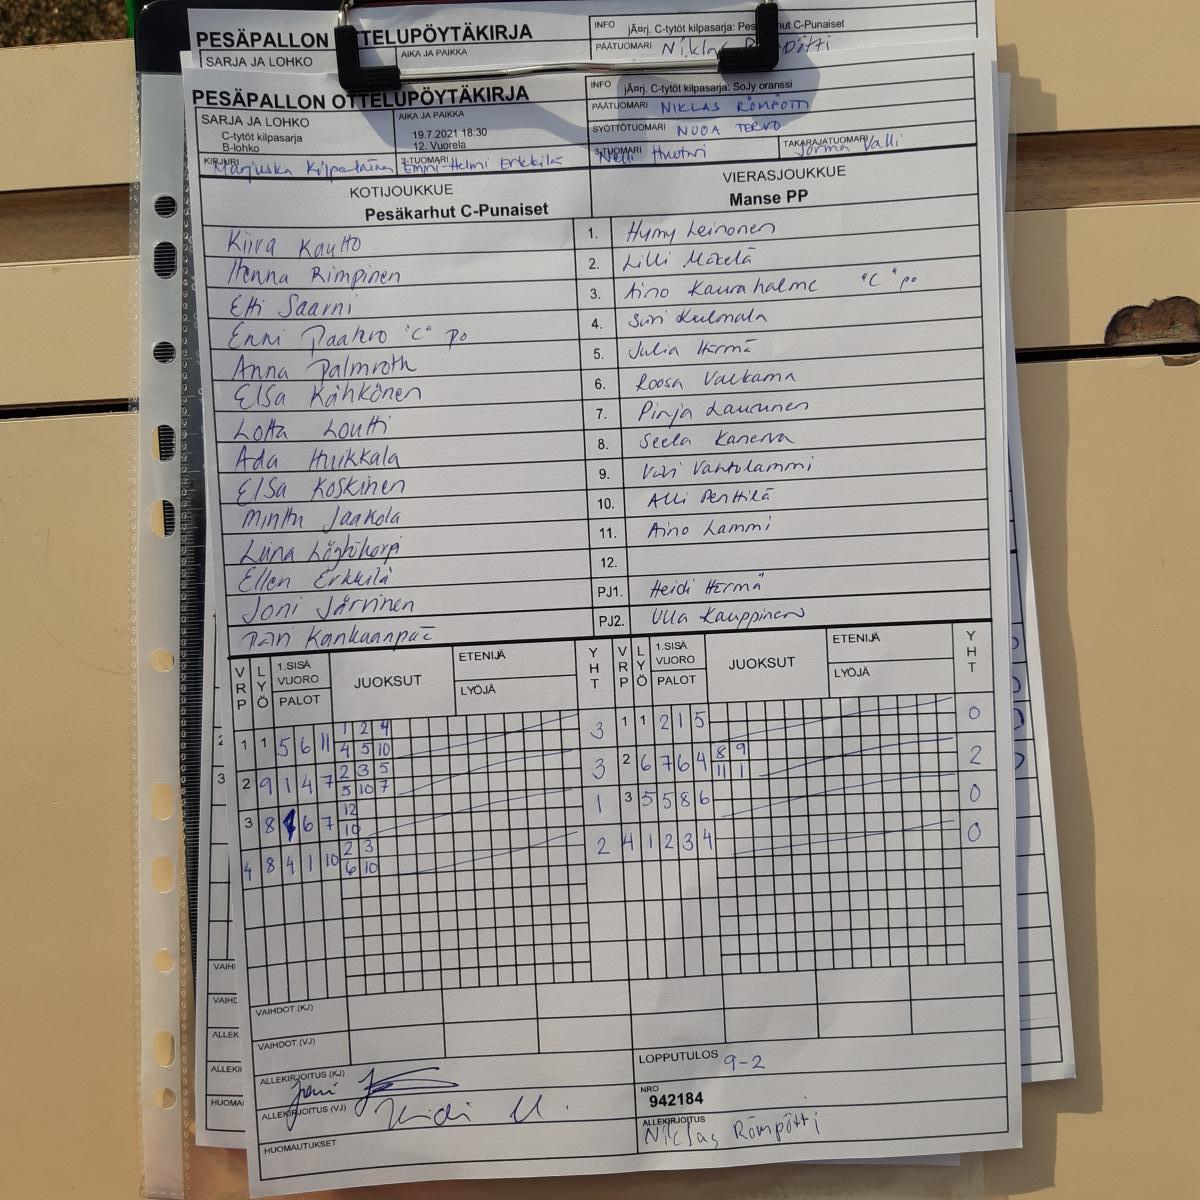 PESÄPALLON OTTELUPÖYTÄKIRJA
SARJA JA LOHKO
AIKA JA PAIKKA
INFO jÃ¤rj. C-tytöt kilpasarja: Pes hut C-Punaiset
PÄÄTUOMARI Niklas Römpötti
PESÄPALLON OTTELUPÖYTÄKIRJA
INFO jÃ¤rj. C-tytöt kilpasarja: SoJy oranssi
SARJA JA LOHKO
C-tytöt kilpasarja
B-lohko
AIKA JA PAIKKA
19.7.2021 18:30
12. Vuorela
PÄÄTUOMARI NIKLAS RÖMPÖTTI
SYÖTTÖTUOMARI NUUA TERVO
KIRJURI Marjuska Kilpeläinen
2-TUOMARI Emmi-Helmi Erkkilä
3-TUOMARI Nelli Huotari
TAKARAJATUOMARI Jorma Valli
KOTIJOUKKUE
Pesäkarhut C-Punaiset
VIERASJOUKKUE
Manse PP
Kiira Kautto 1. Hymy Leinonen
Henna Rimpinen 2. Lilli Mäkelä
Etti Saarni 3. Aino Kaurahalme "C" po
Enni Paakro "C" po 4. Siiri Kulmala
Anna Palmroth 5. Julia Härmä
Elsa Kähkönen 6. Roosa Valkama
Lotta Loutti 7. Pinja Laurunen
Ada Huikkala 8. Seela Kanerva
Elsa Koskinen 9. Vahtolammi
Minttu Jaakola 10. Alli Penttilä
Liina 11. Aino Lammi
Ellen Erkkilä 12.
Joni Järvinen PJ1. Heidi Härmä
Pari Kankaanpää PJ2. Ulla Kauppinen
VRP LYÖ 1.SISÄ VUORO PALOT JUOKSUT ETENIJÄ LYÖJÄ YHT VRP LYÖ 1.SISÄ VUORO PALOT JUOKSUT ETENIJÄ LYÖJÄ YHT
1 1 5 6 11 1 2 4 3 1 1 2 1 5 0
4 5 10
2 9 1 4 7 2 3 5 3 2 6 7 6 4 8 9 2
5 10 7 11 1
3 8 6 7 12 1 3 5 5 8 6 0
10
4 8 4 1 10 2 3 2 4 1 2 3 4 0
6 10
VAIHDOT (KJ)
VAIHDOT (VJ)
ALLEKIRJOITUS (KJ) Joni
ALLEKIRJOITUS (VJ) Heidi
HUOMAUTUKSET
LOPPUTULOS 9-2
NRO
942184
ALLEKIRJOITUS
Niklas Römpötti